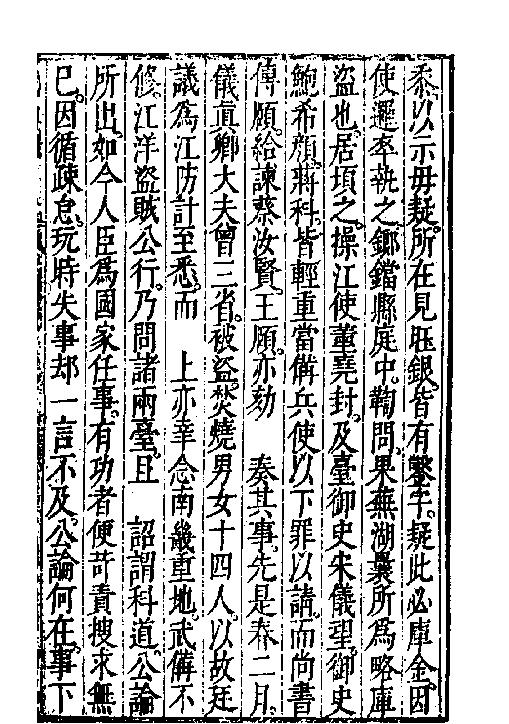 黍。以示毋疑。所在見瓯銀。皆有鏨字。疑此必庫金。因
使邏卒執之。鎯鐺縣庭中。鞫問。果蕪湖曩所為略庫
盜也。居頃之。操江使董堯封。及臺御史朱儀望。御史
鮑希顏。蔣科。皆輕重當備兵使以下罪以請。而尚書
傅頤。給諫蔡汝賢。王頤。亦劾　奏其事。先是春二月。
儀真鄉大夫曾三省。被盜。焚燒男女十四人。以故廷
議為江防計至悉。而　上亦幸念南畿重地。武備不
修。江洋盜賊公行。乃問諸兩臺。且　詔謂科道。公論
所出。如今人臣為國家任事。有功者便苛責搜求無
已。因循疎怠。玩時失事却一言不及。公論何在。事下